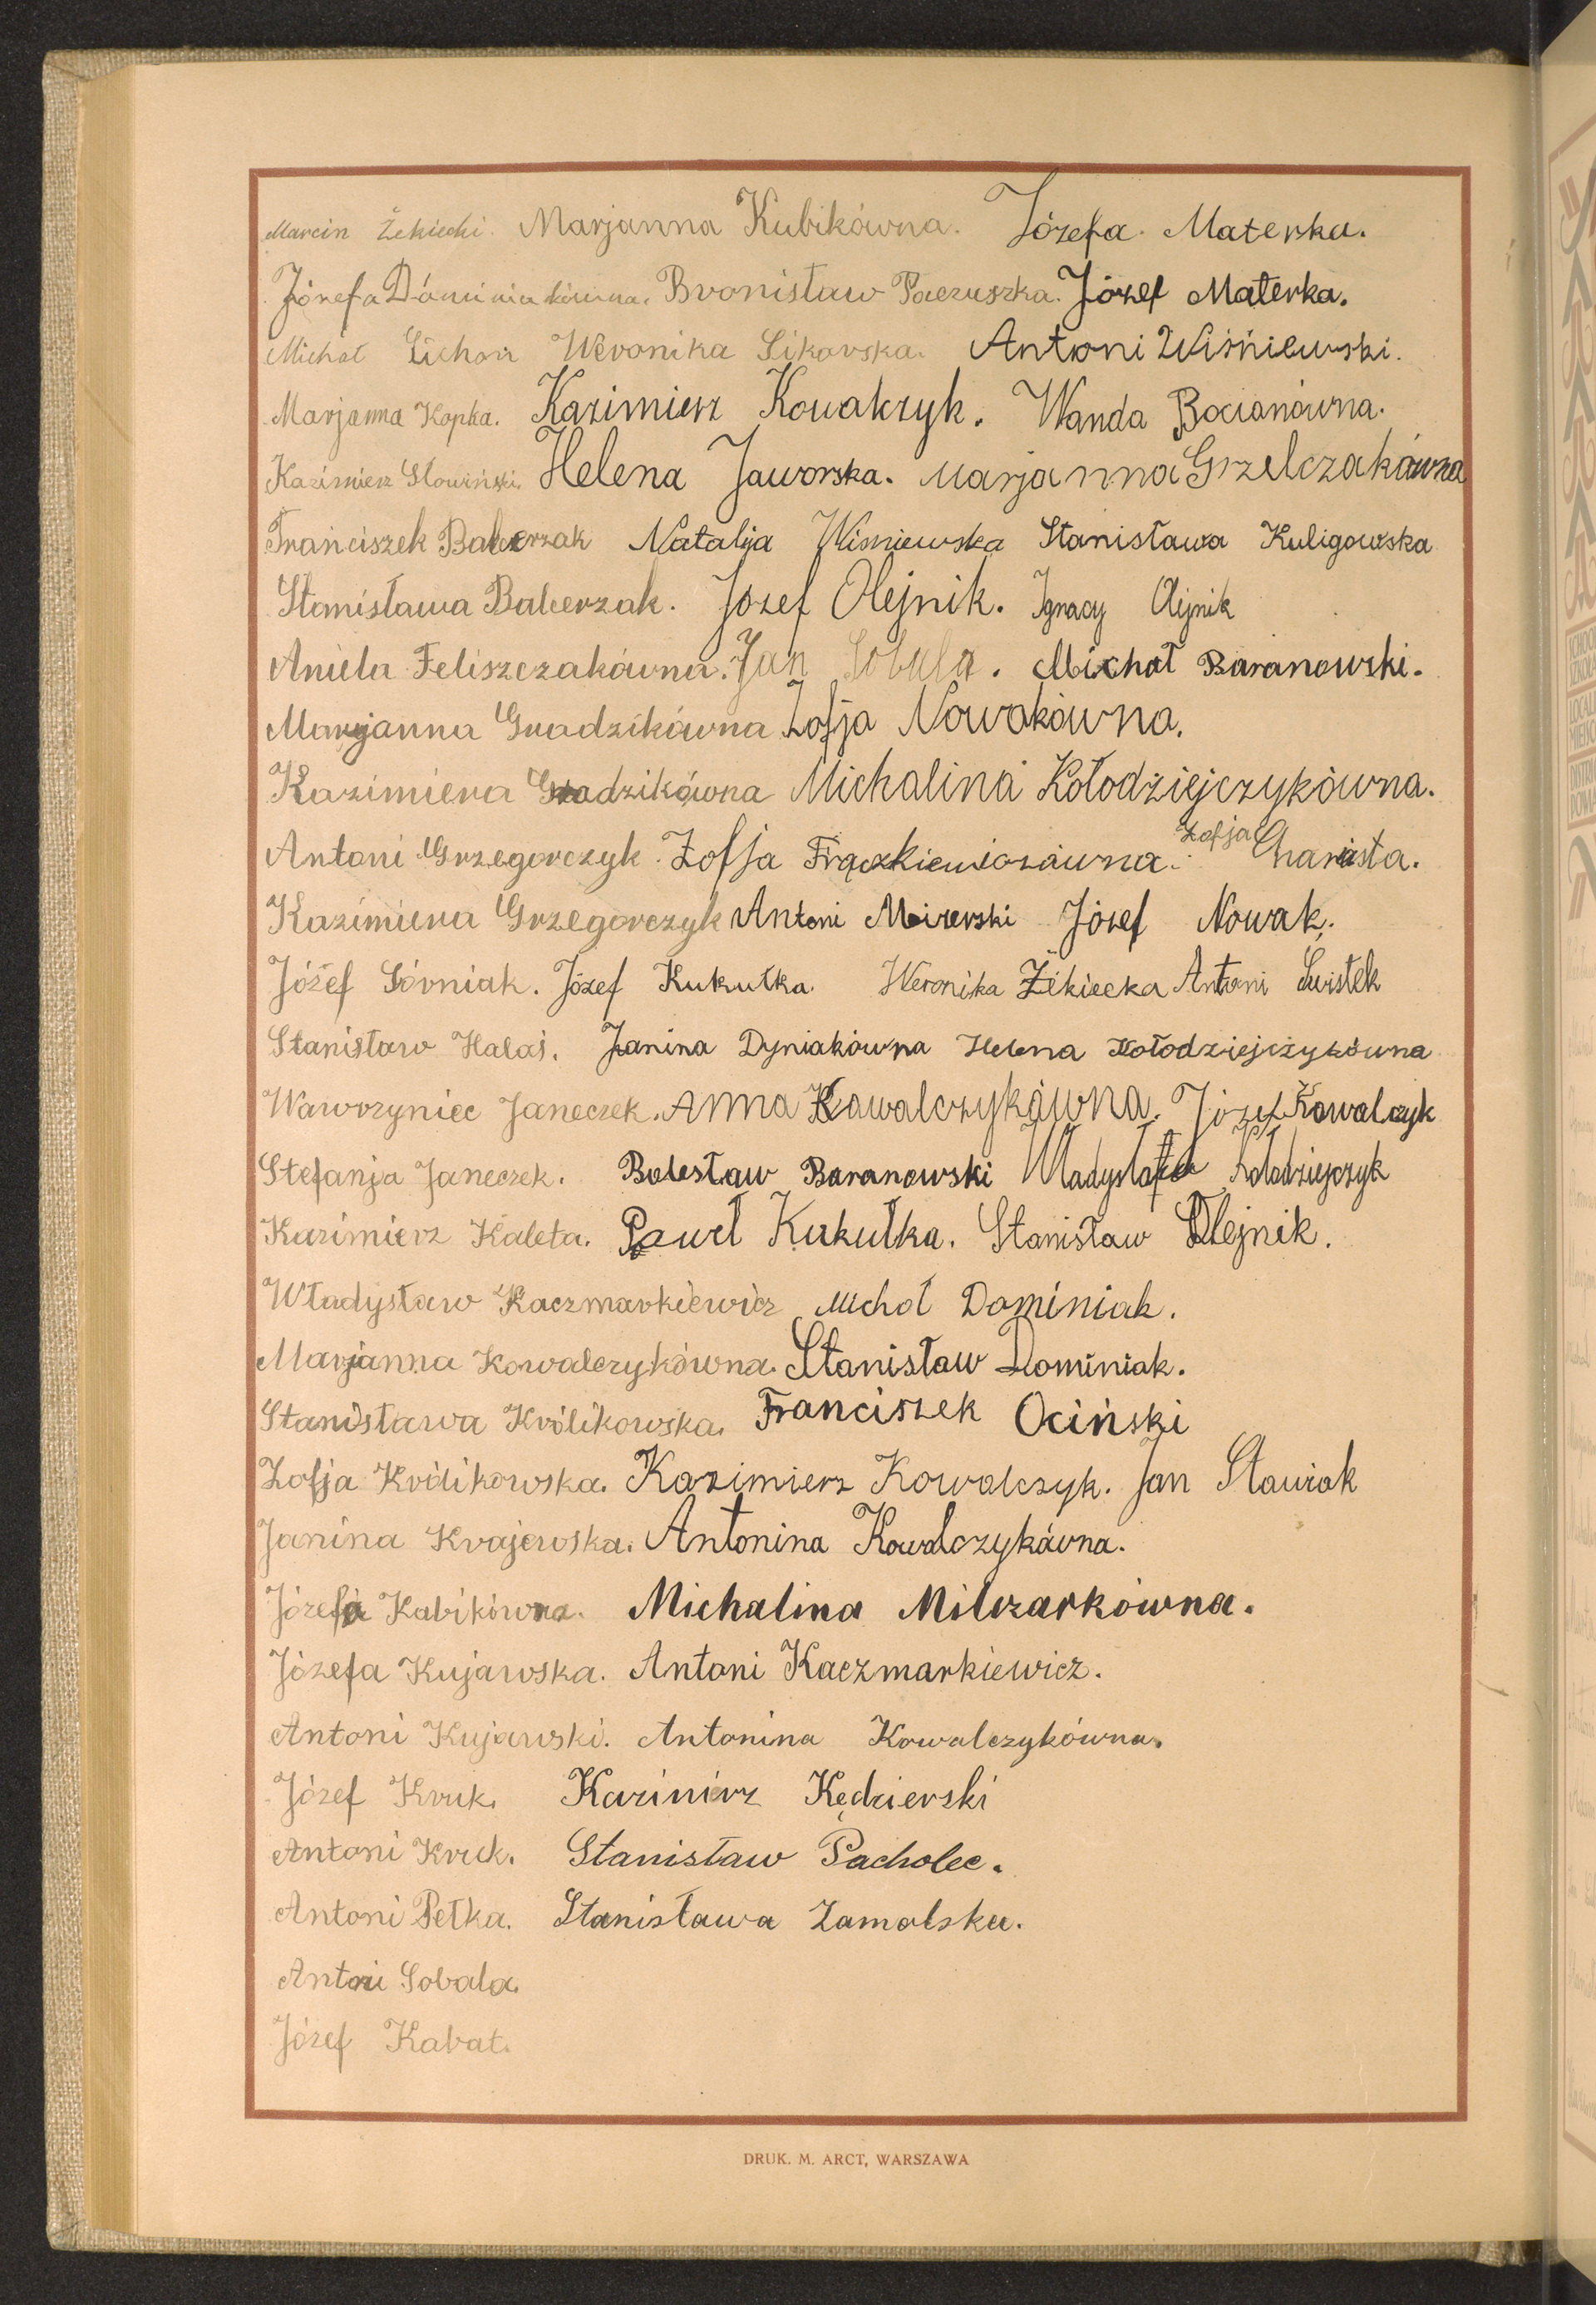 Marcin Żekiecki. Marjanna Kubikówna. Józefa Materka.
Józefa Dominiakówna. Bronisław Paczuszka. Józef Materka.
Michał Cichoń Weronika Sikorska. Antoni Wiśniewski.
Marjanna Kopka. Kazimierz Kowalczyk. Wanda Bocianówna.
Kazimierz Słowiński. Helena Jaworska. Marjanna Grzelczakówna
Franciszek Balcerzak Natalija Wiśniewska Stanisława Kuligowska
Stanisława Balcerzak. Józef Olejnik. Ignacy Olejnik
Aniela Feliszczakówna. Jan Sobala. Michał Baranowski.
Maryjanna Gradzikówna Zofja Nowakówna.
Kazimiera Gradzikówna Michalina Kołodziejczykówna.
Antoni Grzegorczyk. Zofja Frączkiewiczówna. Zofja Charista.
Kazimiera Grzegorczyk Antoni Mirerski Józef Nowak.
Józef Górniak. Józef Kukułka Weronika Żékiecka Antoni Świstek
Stanisław Halaś. Janina Dyniakówna Helena Kołodziejczykówna
Wawrzyniec Janeczek. Anna Kawalczykówna. Józef Kowalczyk
Stefanja Janeczek. Bolesław Baranowski Władysław Kołodziejczyk
Kazimierz Kaleta. Paweł Kukułka. Stanisław Olejnik.
Władysław Kaczmarkiewicz Michoł Dominiak.
Marjanna Kowalczykówna. Stanisław Dominiak.
Stanisława Królikowska. Franciszek Ociński
Zofja Królikowska. Kazimierz Kowalczyk. Jan Stawiak
Janina Krajewska. Antonina Kowalczykówna.
Józefa Kabikówna. Michalina Milczarkówna.
Józefa Kujawska. Antoni Kaczmarkiewicz.
Antoni Kujawski. Antonina Kowalczykówna.
Józef Kruk. Kazimierz Kędzierski
Antoni Kruk. Stanisław Pacholec.
Antoni Pełka. Stanisława Zamolska.
Antoni Sobala.
Józef Kabat.
DRUK. M. ARCT, WARSZAWA